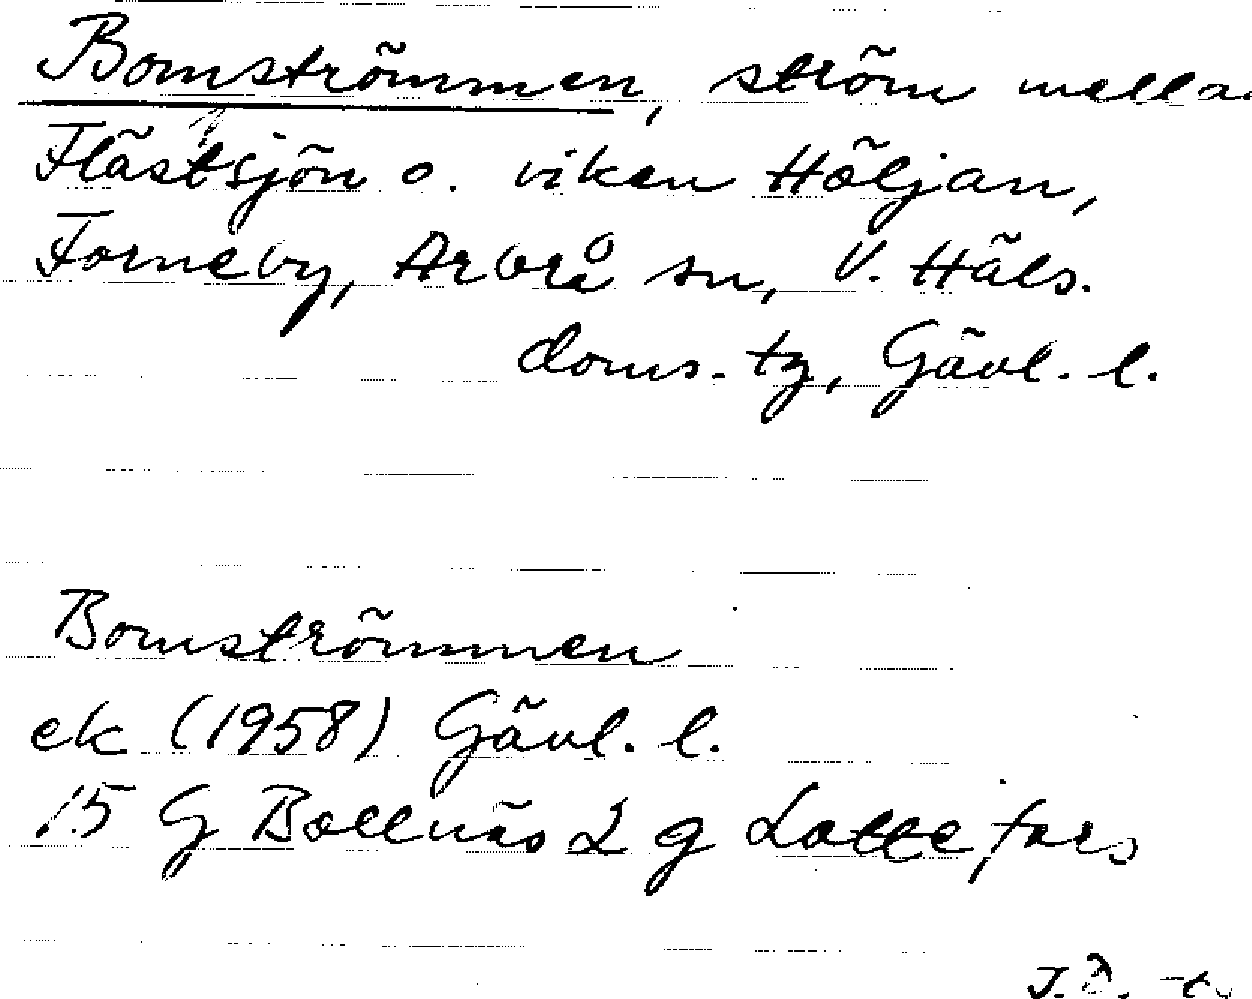 Bomströmmen, ström mella
Flästsjön o. viken Häljan,
Forneby, Arbrå sn, V. Häls.
doms. tg, Gävl. l.
Bomströmmen
ek (1958) Gävl. l.
15 G Bollnäs 2 g Lottefors